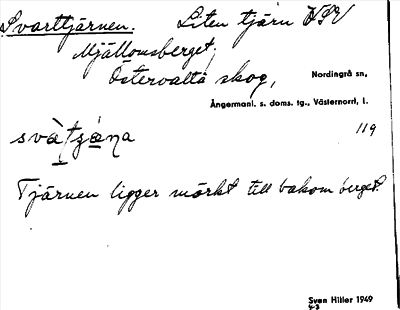 Svarttjärnen. Liten tjärn VSV
Mjällomsberget,
Östervalta skog, Nordingrå sn,
Ångermanl. s. doms. tg., Västernorrl. l.
119
Tjärnen ligger mörkt till bakom berget.
Sven Hiller 1949